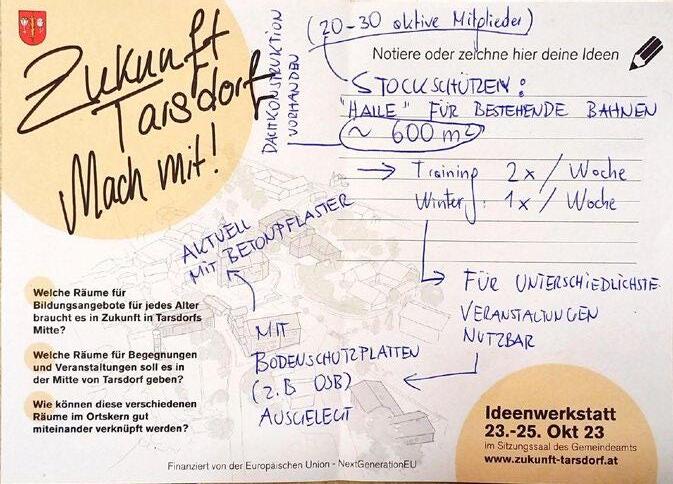 Zukunft
Tarsdorf
Mach mit!
(20-30 aktive Mitglieder)
Notiere oder zeichne hier deine Ideen
DACHKONSTRUKTION
VORHANDEN
STOCKSCHÜTZEN:
"HALLE" FÜR BESTEHENDE BAHNEN
~ 600 m²
→ Training 2x / Woche
Winter: 1x / Woche
AKTUELL
MIT BETONPFLASTER
→ FÜR UNTERSCHIEDLICHSTE
VERANSTALTUNGEN
NUTZBAR
MIT
BODENSCHUTZPLATTEN
(z.B OSB)
AUSGELEGT
Welche Räume für
Bildungsangebote für jedes Alter
braucht es in Zukunft in Tarsdorfs
Mitte?
Welche Räume für Begegnungen
und Veranstaltungen soll es in
der Mitte von Tarsdorf geben?
Wie können diese verschiedenen
Räume im Ortskern gut
miteinander verknüpft werden?
Ideenwerkstatt
23.-25. Okt 23
im Sitzungssaal des Gemeindeamts
www.zukunft-tarsdorf.at
Finanziert von der Europäischen Union - NextGenerationEU